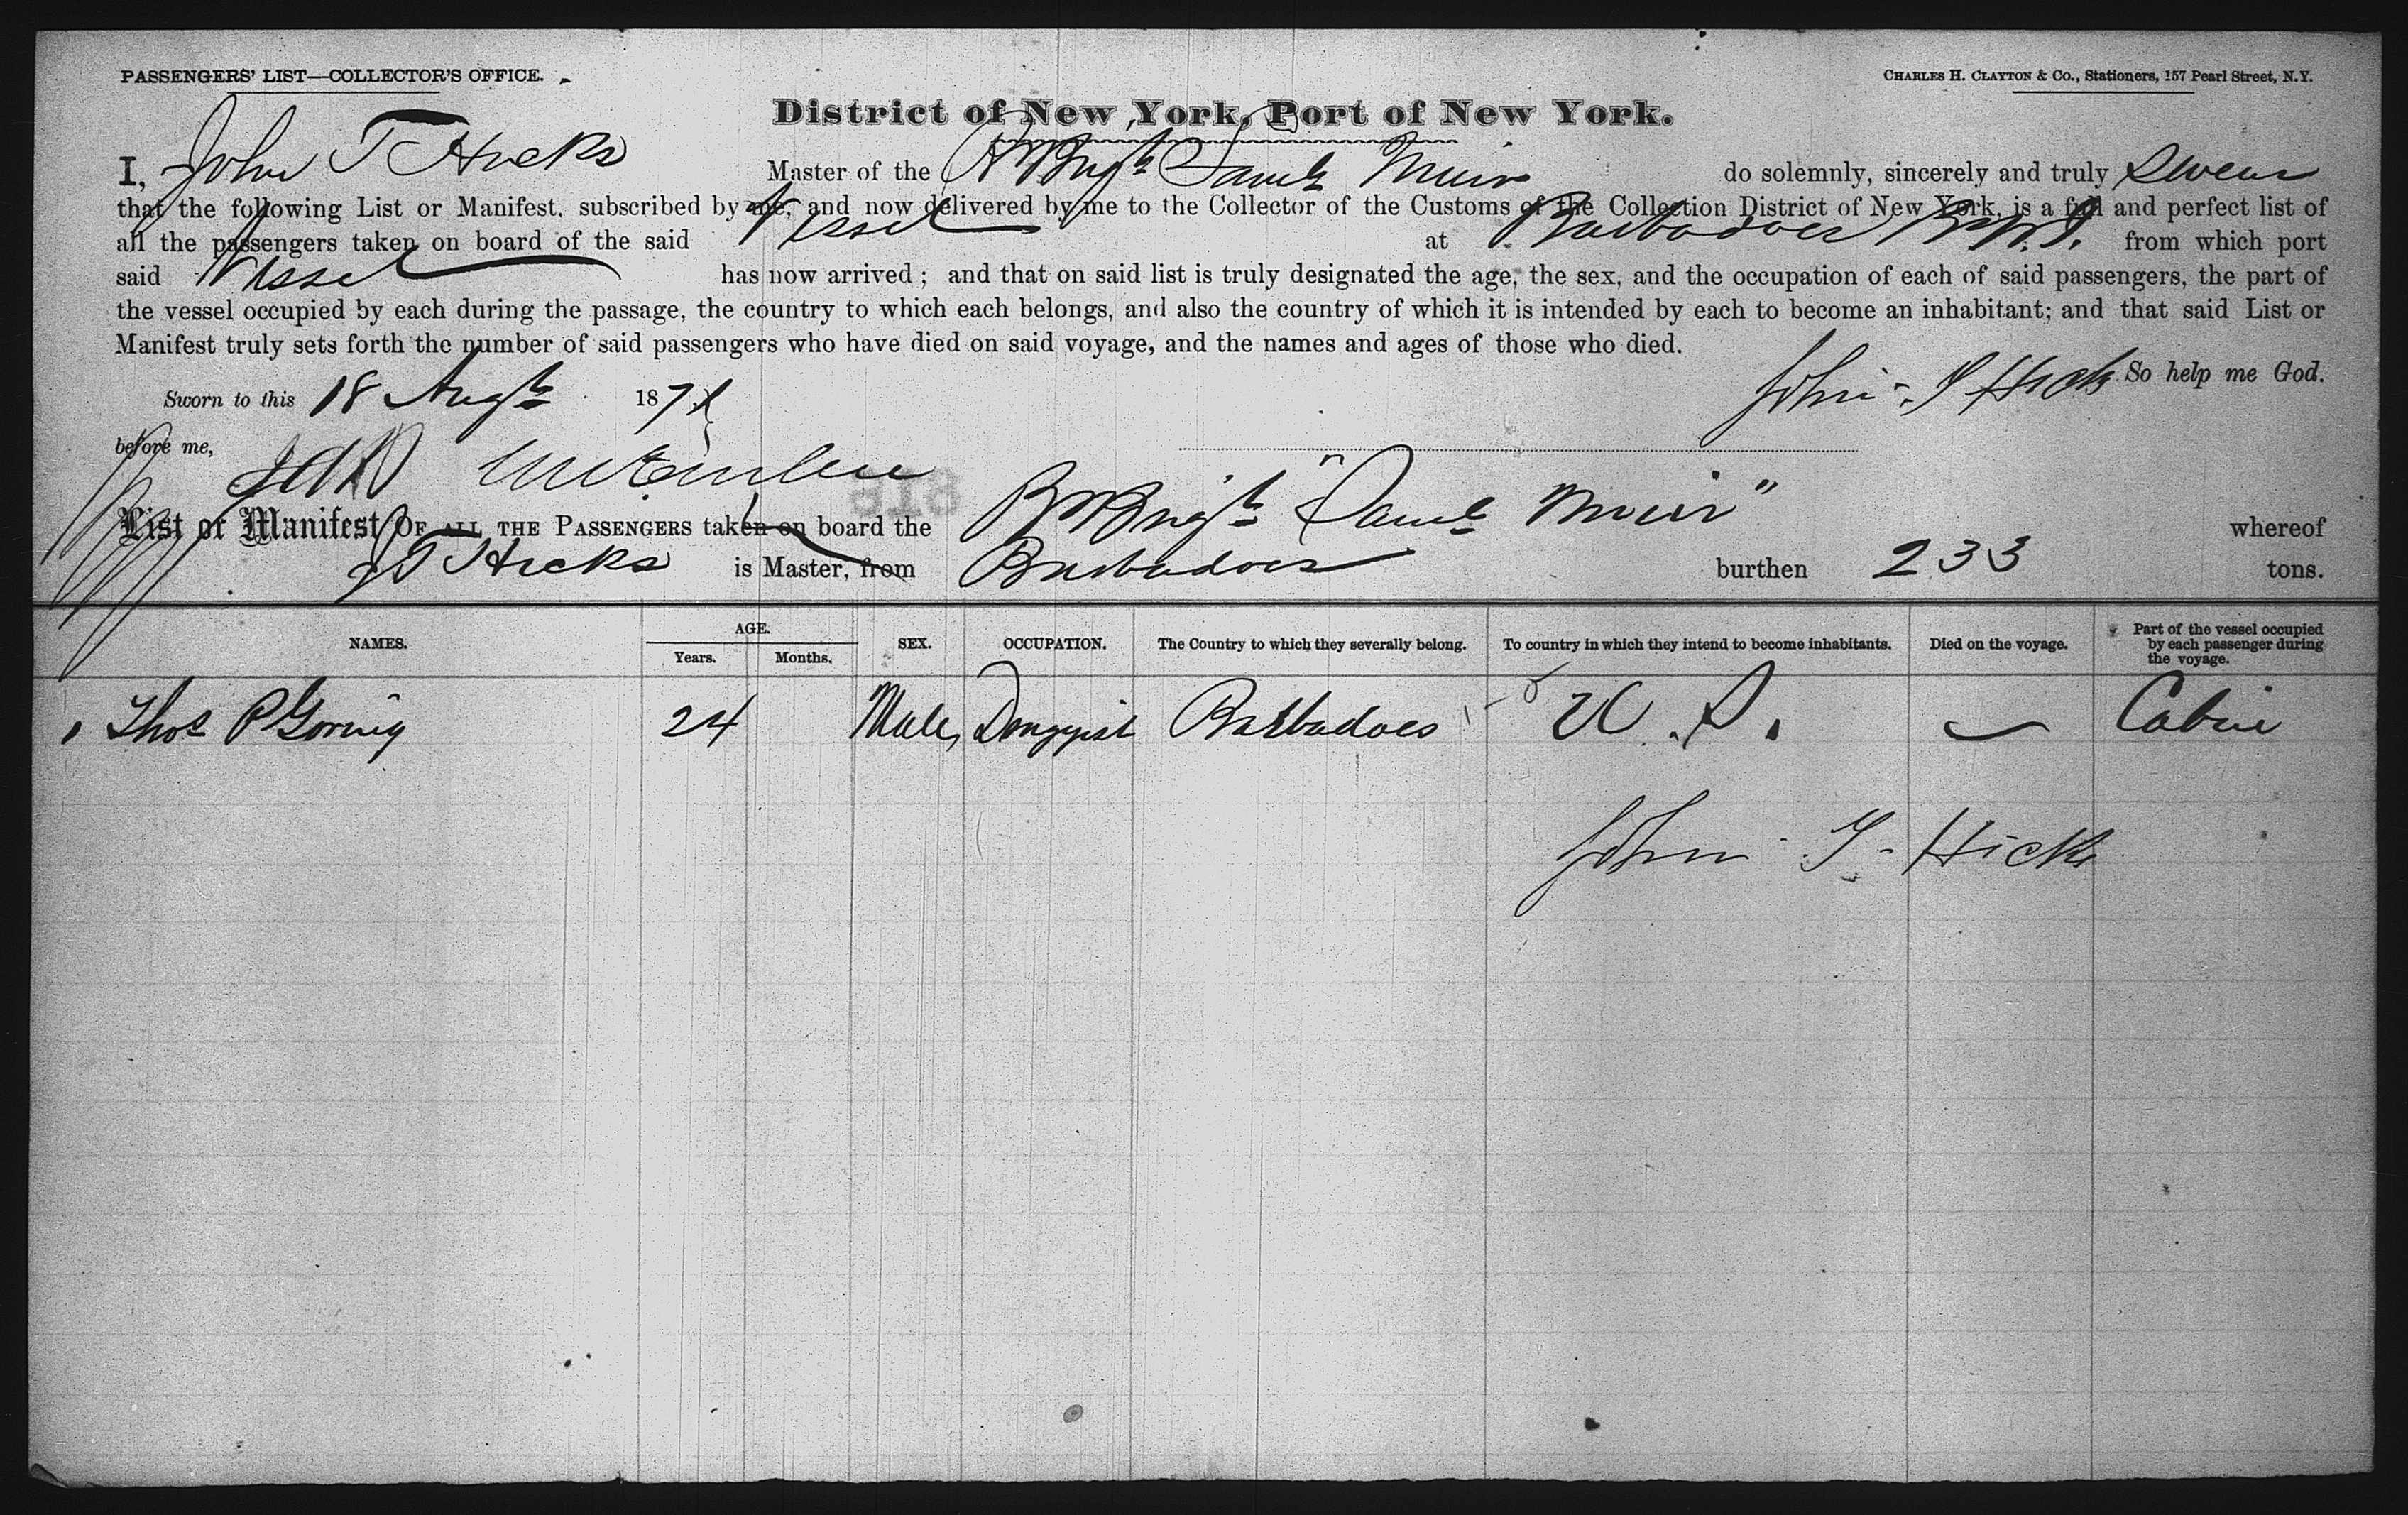 PASSENGERS' LIST—COLLECTOR'S OFFICE.
CHARLES H. CLAYTON & Co., Stationers, 157 Pearl Street, N.Y.
District of New York, Port of New York.
I, John T Hicks Master of the Brigt Saml Muir do solemnly, sincerely and truly Swear
that the following List or Manifest, subscribed by me, and now delivered by me to the Collector of the Customs of the Collection District of New York, is a full and perfect list of
all the passengers taken on board of the said Vessel at Barbadoes from which port
said Vessel has now arrived; and that on said list is truly designated the age, the sex, and the occupation of each of said passengers, the part of
the vessel occupied by each during the passage, the country to which each belongs, and also the country of which it is intended by each to become an inhabitant; and that said List or
Manifest truly sets forth the number of said passengers who have died on said voyage, and the names and ages of those who died.
John T Hicks So help me God.
Sworn to this 18 Augt 1871
before me,
List or Manifest OF ALL THE PASSENGERS taken on board the Brigt "Saml Muir" whereof
J T Hicks is Master, from Barbadoes burthen 233 tons.
NAMES. AGE. Years. Months. SEX. OCCUPATION. The Country to which they severally belong. To country in which they intend to become inhabitants. Died on the voyage. Part of the vessel occupied by each passenger during the voyage.
1 Thos P Goring 24 Male Druggist Barbadoes U.S. — Cabin
John T. Hicks